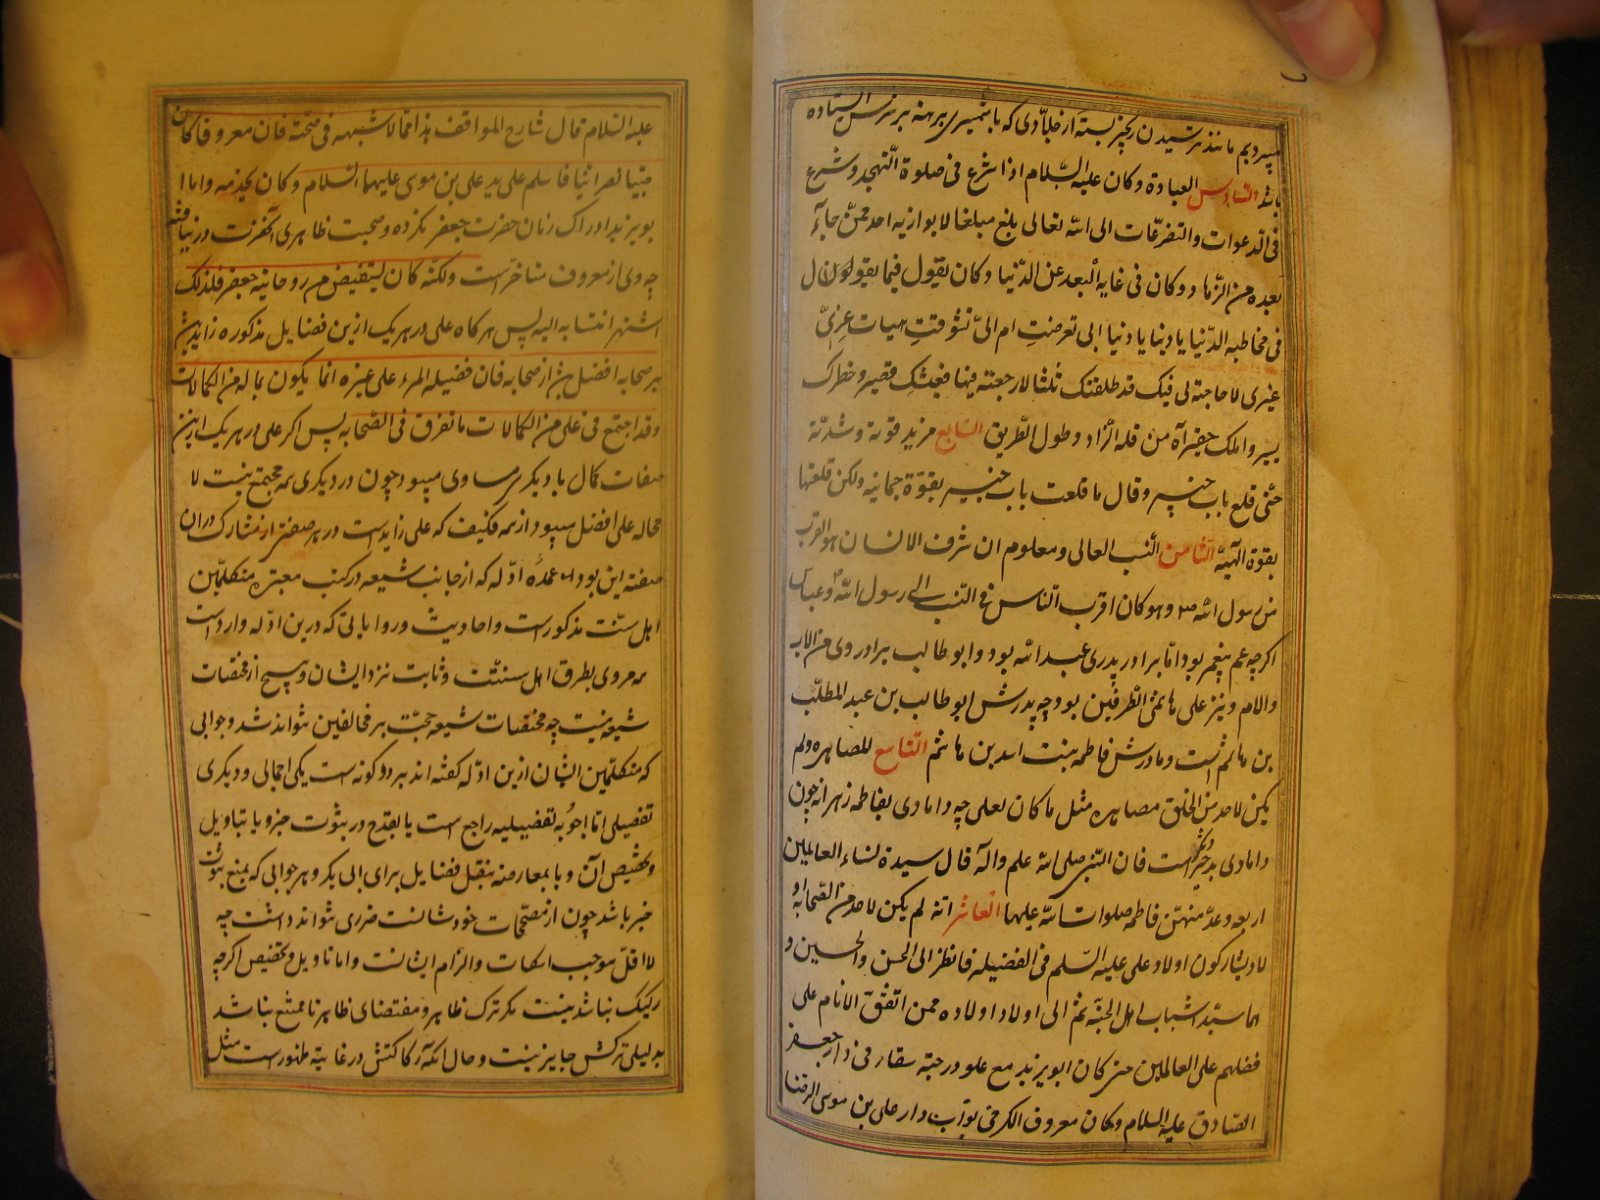 میبردیم مانند ترسیدن زنجیر بسته از جلادی که با شمشیری برهنه بر سرش ایستاده
باشد السادس العبادة وکان علیه السّلام اذا شرع فی صلوة التهجد وشرع
فی الدعوات والتضرعات الی الله تعالی بلغ مبلغا لا یوازیه احد ممن جاء
بعده من الزهاد وکان فی غایه البعد عن الدّنیا وکان یقول فیما یقول
فی مخاطبه الدّنیا یا دنیا یا دنیا ابی تعرضت ام الیّ تشوقت هیهات غرّی
غیری لا حاجة لی فیک قد طلقتک ثلثا لا رجعة فیها فعیشک قصیر وخطرک
یسیر واملک حقیر آه من قلة الزاد وطول الطریق السابع مزید قوته وشدته
حتی قلع باب خیبر وقال ما قلعت باب خیبر بقوّة جسمانیه ولکن قلعتها
بقوة الهیّه الثامن النسب العالی ومعلوم ان شرف الانسان هو القرب
من رسول الله ص وهو کان اقرب الناس فی النسب الی رسول الله وعباس
اگرچه عم پیغمبر بود امّا برادر پدری عبد الله بود وابو طالب برادر وی من الاب
والام ونیز علی هاشمی الطرفین بود چه پدرش ابو طالب بن عبد المطلب
بن هاشم است ومادرش فاطمه بنت اسد بن هاشم التاسع المصاهره ولم
یکن لاحد من الخلق مصاهره مثل ما کان لعلی چه دامادی بفاطمه زهرا نه چون
دامادی بدختر دیگر است فان النبی صلی الله علیه واله قال سیدة نساء العالمین
اربعه وعدّ منهنّ فاطمه صلوات الله علیها العاشر انه لم یکن لاحد من الصحابة اولاد
یشارکون اولاد علی علیه السّلم فی الفضیله فانظر الی الحسن والحسین و
هما سیدا شباب اهل الجنّه ثم الی اولاد اولاده ممن اتفق الانام علی
فضلهم علی العالمین حتی کان ابو یزید مع علو درجته سقاء فی دار جعفر
الصادق علیه السلام وکان معروف الکرخی بواب دار علی بن موسی الرضا
علیه السّلام قال شارح المواقف هذا ممّا لا شبهه فی صحّته فان معروفا کان
صبیا نصرانیا فاسلم علی ید علی بن موسی علیهما السّلام وکان یخدمه واما ا
بو یزید ادراک زمان حضرت جعفر نکرده وصحبت ظاهری آنحضرت در نیافته
چه وی از معروف متاخر است ولکنّه کان یستفیض من روحانیه جعفر فلذلک
اشتهر انتسابه الیه پس هرگاه علی در هر یک ازین فضایل مذکوره زاید بر
سر صحابه افضل از صحابه فان فضیله المرء علی غیره انما یکون بما له من الکمالات
وقد اجتمع فی علی من الکمالات ما تفرق فی الصحابه پس اگر علی در هر یک ازین
صفات کمال با دیگری مساوی میبود چون در دیگری همه مجتمع نیست لا
محاله علی افضل میبود از همه فکیف که علی زاید است در هر صفتی از مشارک در ان
صفت این بود عمدهٔ ادّله که از جانب شیعه در کتب معتبره متکلّمین
اهل سنّت مذکور است واحادیث وروایاتی که درین ادّله وارد است
همه مروی بطرق اهل سنت وثابت نزد ایشان وهیچ از مختصات
شیعه نیست چه مختصات شیعه حجّت بر مخالفین نتواند شد وجوابی
که متکلّمین ایشان ازین ادّله گفته اند بر دو گونه است یکی اجمالی ودیگری
تفصیلی اما اجوبه تفصیلیه راجع است یا بقدح در ثبوت خبر ویا بتاویل
وتخصیص آن ویا بمعارضه بنقل فضایل برای ابی بکر وهر جوابی که بمنع ثبوت
خبر باشد چون از مصححات خودشانست ضرری نتواند داشت چه
لا اقلّ موجب اسکات والزام ایشانست واما تاویل وتخصیص اگرچه
رکیک نباشد نیست مگر ترک ظاهر ومقتضای ظاهر تا ممتنع نباشد
بدلیلی ترکش جایز نیست وحال آنکه رکاکتش در غایة ظهور است مثل